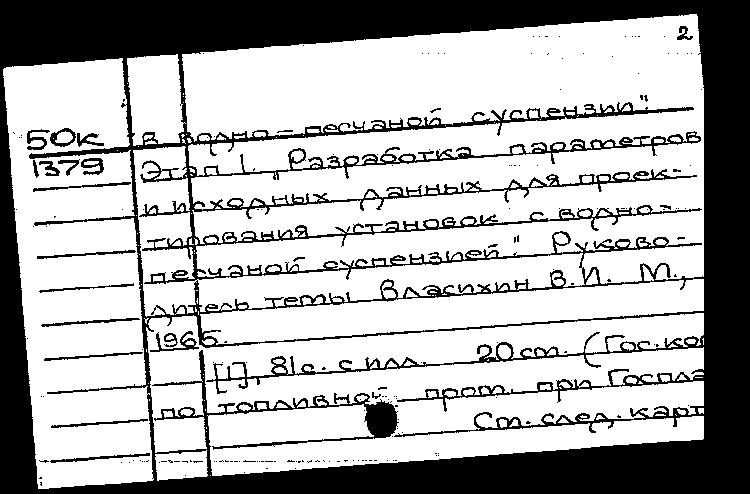 2
50к в водно-песчаной суспензии".
1379 Этап 1. „Разработка параметров
и исходных данных для проек-
тирования установок с водно-
песчаной суспензией". Руково-
дитель темы Власихин В.И. М.,
1965.
[1], 81с. с илл. 20 см. (Гос. ком
по топливной пром. при Госпла
См. след. карт